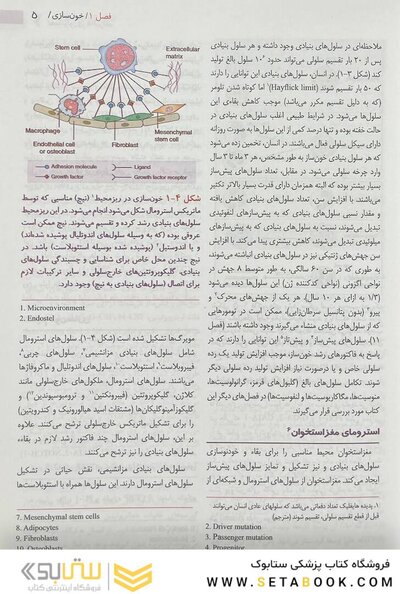 فصل ۱/ خون‌سازی / ۵
ملاحظه‌ای در سلول‌های بنیادی وجود داشته و هر سلول بنیادی
پس از ۲۰ بار تقسیم سلولی می‌تواند حدود ۱۰⁶ سلول بالغ تولید
کند (شکل ۳-۱). در انسان، سلول‌های بنیادی این توانایی را دارند
که ۵۰ بار تقسیم شوند (Hayflick limit)¹ اما کوتاه شدن تلومر
(که به دلیل تقسیم مکرر می‌باشد) موجب کاهش بقاءی این
سلول‌ها می‌شود. در شرایط طبیعی اغلب سلول‌های بنیادی در
حالت خفته بوده و تنها درصد کمی از این سلول‌ها به صورت روزانه
دارای سیکل سلولی فعال می‌باشند. در انسان، تخمین زده می‌شود
که هر سلول بنیادی خون‌ساز به طور مشخص، هر ۳ ماه تا ۳ سال
وارد چرخه سلولی می‌شود. در مقابل، تعداد سلول‌های پیش‌ساز
بسیار بیشتر بوده که البته همزمان دارای قدرت بسیار بالاتر تکثیر
می‌باشند. با افزایش سن، تعداد سلول‌های بنیادی کاهش یافته
و مقدار نسبی سلول‌های بنیادی که به پیش‌سازهای لنفوئیدی
تبدیل می‌شوند، نسبت به سلول‌های بنیادی که به پیش‌سازهای
میلوئیدی تبدیل می‌شوند، کاهش بیشتری پیدا می‌کند. با افزایش
سن جهش‌های ژنتیکی نیز در سلول‌های بنیادی انباشته می‌شوند،
به طوری که در سن ۶۰ سالگی به طور متوسط ۸ جهش در
نواحی اگزونی (نواحی کدکننده ژن) این سلول‌ها دیده می‌شود
(۱/۳ به ازای هر ۱۰ سال). هر یک از جهش‌های محرک² و
پیرو³ (بدون پتانسیل سرطان‌زایی)، ممکن است در تومورهایی
که از سلول‌های بنیادی منشاء می‌گیرند وجود داشته باشند (فصل
۱۱). سلول‌های پیش‌ساز⁴ و پیش‌تاز⁵ این توانایی را دارند که در
پاسخ به فاکتورهای رشد خون‌ساز، موجب افزایش تولید یک رده
سلولی خاص و یا درصورت نیاز افزایش تولید رده سلولی دیگر
شوند. تکامل سلول‌های بالغ (گلبول‌های قرمز، گرانولوسیت‌ها،
منوسیت‌ها، مگاکاریوسیت‌ها و لنفوسیت‌ها) در فصل‌های دیگر این
کتاب مورد بررسی قرار می‌گیرند.
استرومای مغزاستخوان⁶
مغزاستخوان محیط مناسبی را برای بقاء و خودنوسازی
سلول‌های بنیادی و نیز تشکیل و تمایز سلول‌های پیش‌ساز
ایجاد می‌کند. مغزاستخوان از سلول‌های استرومال و شبکه‌ای از
۱. پدیده هایفلیک تعداد دفعاتی می‌باشد که سلولهای عادی انسان می‌توانند
قبل از قطع تقسیم سلولی، تقسیم شوند (مترجم)
2. Driver mutation
3. Passenger mutation
4. Progenitor
Stem cell
Extracellular
matrix
Macrophage
Endothelial cell
or osteoblast
Fibroblast
Mesenchymal
stem cell
Adhesion molecule
Ligand
Growth factor
Growth factor receptor
شکل ۴-۱ خون‌سازی در ریزمحیط¹ (نیچ) مناسبی که توسط
ماتریکس استرومال شکل می‌شود انجام می‌شود. در این ریزمحیط
سلول‌های بنیادی رشد کرده و تقسیم می‌شوند. نیچ ممکن است
عروقی بوده (که به وسیله سلول‌های اندوتلیال پوشیده شده‌اند)
و یا اندوستیل² (پوشیده شده بوسیله استئوبلاست) باشد. در
نیچ چندین محل خاص برای شناسایی و چسبندگی سلول‌های
بنیادی، گلیکوپروتئین‌های خارج‌سلولی و سایر ترکیبات لازم
برای اتصال (سلول‌های بنیادی به نیچ) وجود دارد.
1. Microenvironment
2. Endostel
مویرگ‌ها تشکیل شده است (شکل ۴-۱). سلول‌های استرومال
شامل سلول‌های بنیادی مزانشیمی⁷، سلول‌های چربی⁸،
فیبروبلاست⁹، استئوبلاست¹⁰، سلول‌های اندوتلیال و ماکروفاژها
می‌باشند. سلول‌های استرومال، ملکول‌های خارج‌سلولی مانند
کلاژن، گلیکوپروتئین (فیبرونکتین¹¹ و ترومبوسپوندین¹²) و
گلیکوزآمینوگلیکان‌ها (مشتقات اسید هیالورونیک و کندرویتین)
را برای تشکیل ماتریکس خارج‌سلولی ترشح می‌کنند. علاوه
بر این، سلول‌های استرومال چند فاکتور رشد لازم در بقاء،
سلول‌های بنیادی را نیز ترشح می‌کنند.
سلول‌های بنیادی مزانشیمی، نقش حیاتی در تشکیل
سلول‌های استرومال دارند. این سلول‌ها همراه با استئوبلاست‌ها
7. Mesenchymal stem cells
8. Adipocytes
9. Fibroblasts
10. Osteoblasts
ستابوک
فروشگاه اینترنتی کتاب
فروشگاه کتاب پزشکی ستابوک
WWW.SETABOOK.COM